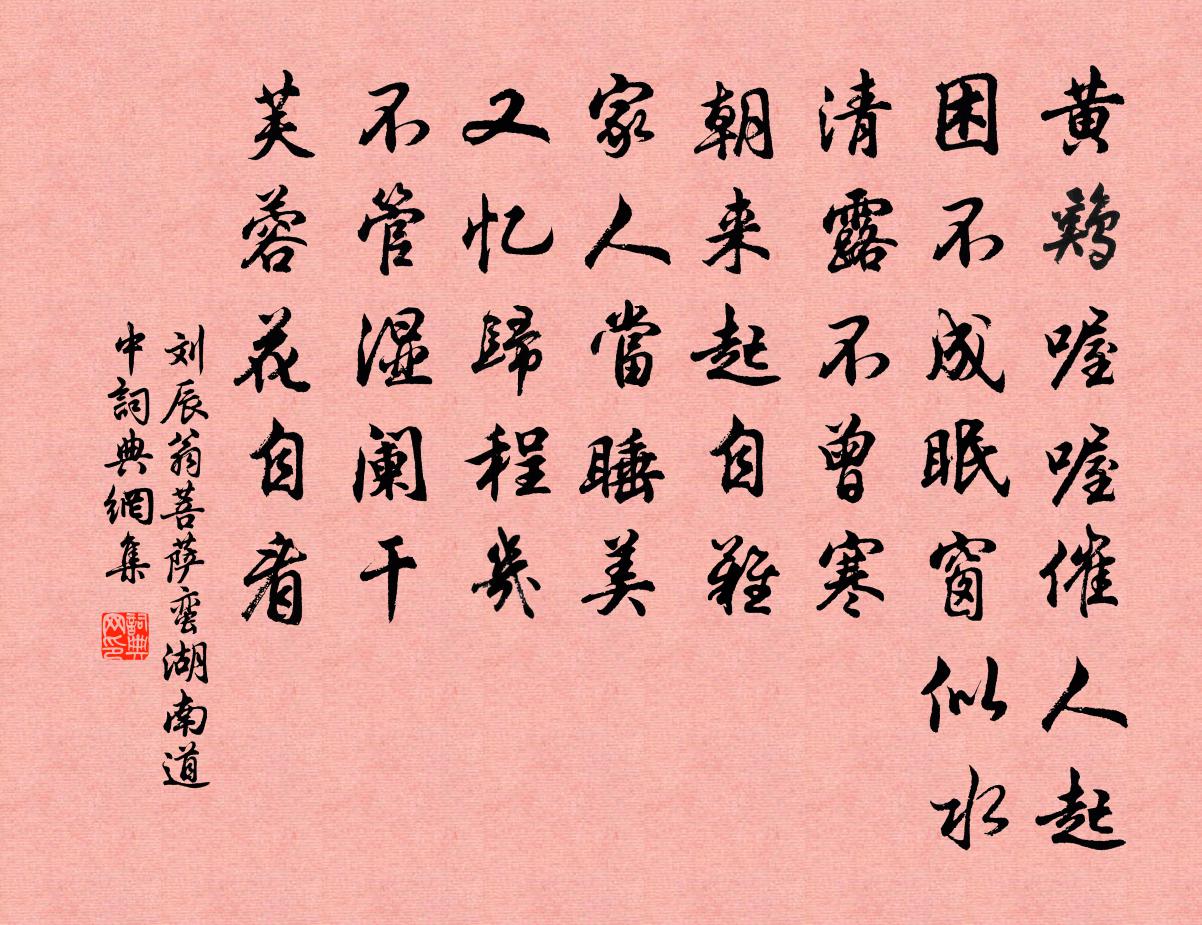 黄鷄喔喔催人起
困不成眠窗似水
清露不曾寒
朝来起自難
家人當睡美
又忆歸程幾
不管湿阑干
芙蓉花自看
刘辰翁菩萨蛮湖南道
中詞典網集
詞典网印